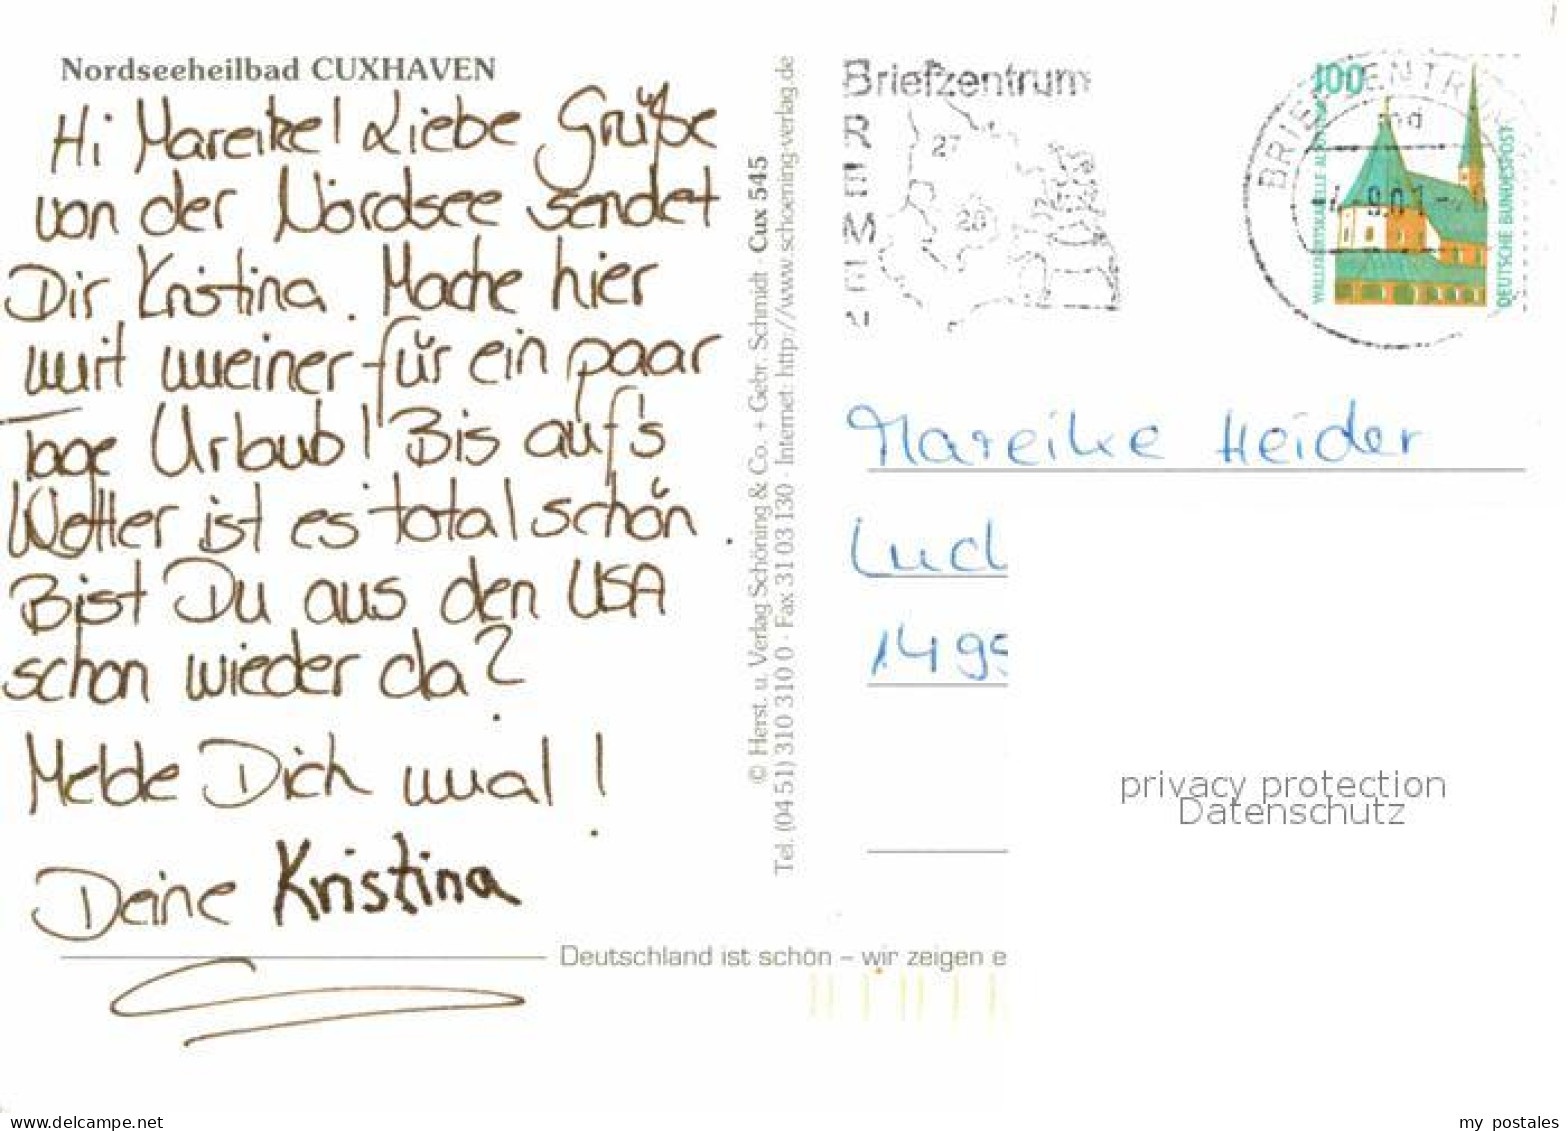 Nordseeheilbad CUXHAVEN
Hi Mareike! Liebe Grüße
von der Nordsee sendet
Dir Kristina. Mache hier
mit meiner für ein paar
Tage Urlaub! Bis auf's
Wetter ist es total schön.
Bist Du aus den USA
schon wieder da?
Melde Dich mal!
Deine Kristina
Deutschland ist schön – wir zeigen e
© Herst. u. Verlag Schöning & Co. + Gebr. Schmidt · Cux 545
Tel. (04 51) 310 310 0 · Fax 31 03 130 · Internet: http://www.schoening-verlag.de
Briefzentrum
BREMEN
27
28
BRIEFZENTRUM
100
DEUTSCHE BUNDESPOST
Mareike Heider
Lud
1499
privacy protection
Datenschutz
www.ansichtskartenversand.com
my postales